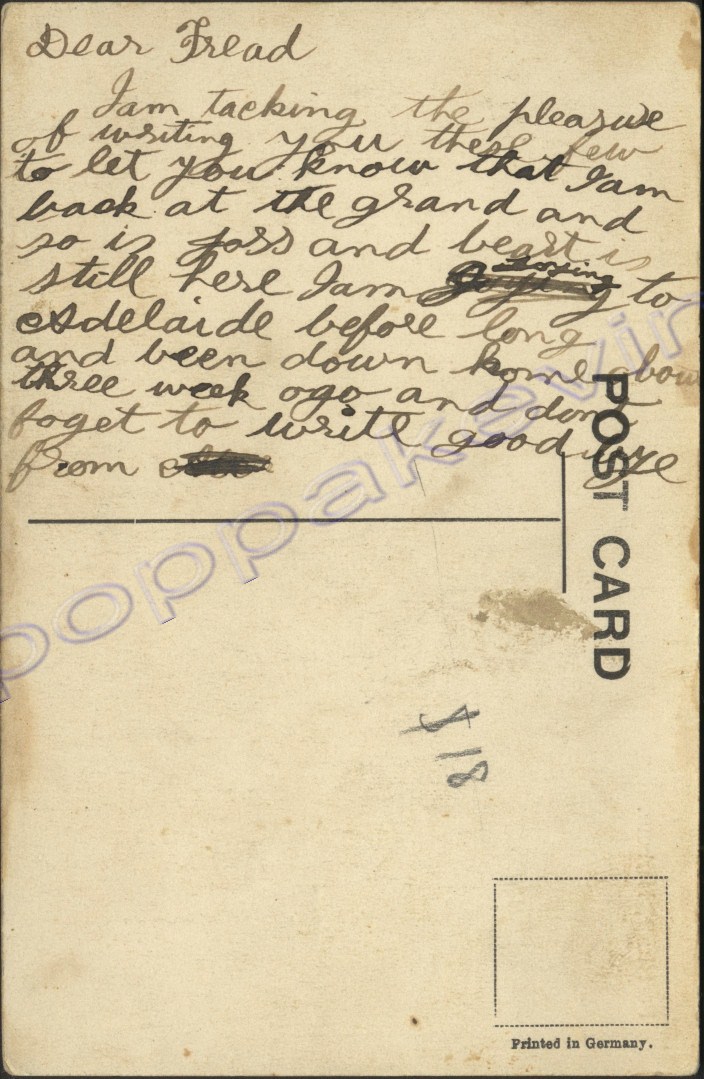 Dear Fread
Iam tacking the pleasure
of writing you these few
to let you know that Iam
back at the grand and
so is joss and beart is
still here Iam going to
Adelaide before long
and been down home abou
three week ago and dont
foget to write good bye
from
POST CARD
$ 18
Printed in Germany.
poppakevin